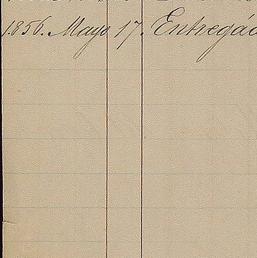 1856. Mayo 17. Entregád